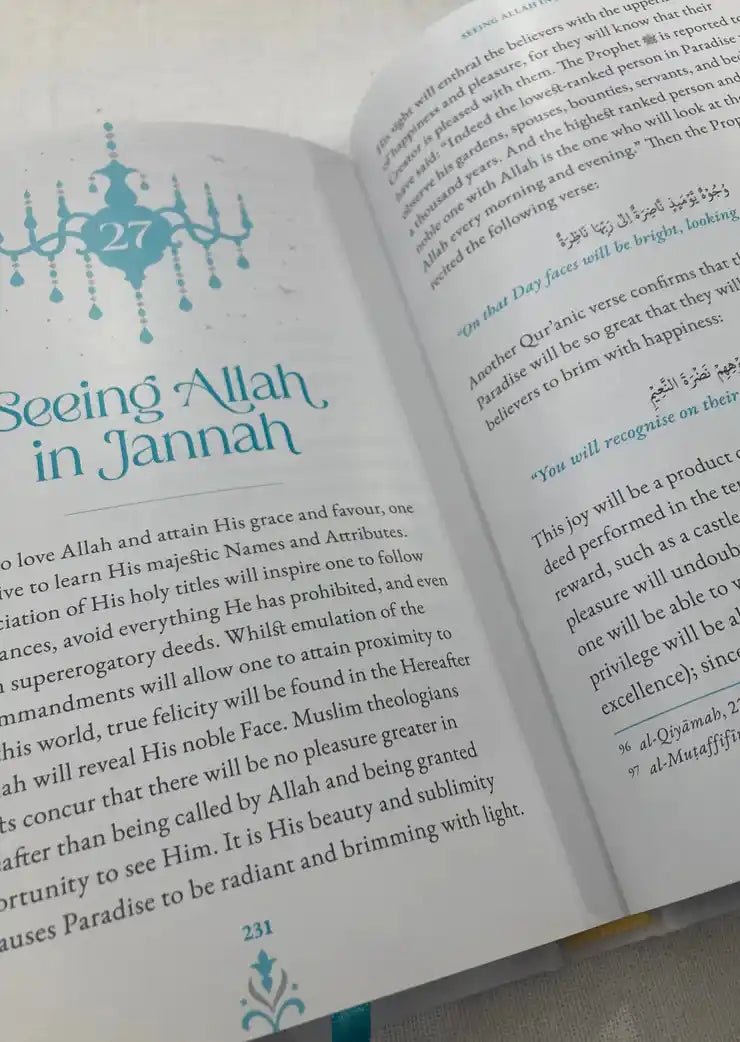 27
Seeing Allah
in Jannah
o love Allah and attain His grace and favour, one
ive to learn His majestic Names and Attributes.
ciation of His holy titles will inspire one to follow
ances, avoid everything He has prohibited, and even
supererogatory deeds. Whilst emulation of the
mmandments will allow one to attain proximity to
his world, true felicity will be found in the Hereafter
ah will reveal His noble Face. Muslim theologians
ts concur that there will be no pleasure greater in
after than being called by Allah and being granted
ortunity to see Him. It is His beauty and sublimity
auses Paradise to be radiant and brimming with light.
231
SEEING ALLAH IN
His sight will enthral the believers with the upper
of happiness and pleasure, for they will know that their
Creator is pleased with them. The Prophet ﷺ is reported to
have said: “Indeed the lowest-ranked person in Paradise
observe his gardens, spouses, bounties, servants, and bed
a thousand years. And the highest ranked person and
noble one with Allah is the one who will look at the
Allah every morning and evening.” Then the Prop
recited the following verse:
وُجُوهٌ يَوْمَئِذٍ نَاضِرَةٌ إِلَى رَبِّهَا نَاظِرَةٌ
“On that Day faces will be bright, looking
Another Qur’anic verse confirms that th
Paradise will be so great that they will
believers to brim with happiness:
وُجُوهِهِمْ نَضْرَةَ النَّعِيْمِ
“You will recognise on their
This joy will be a product o
deed performed in the te
reward, such as a castle
pleasure will undoub
one will be able to v
privilege will be al
excellence); since
96 al-Qiyāmah, 22
97 al-Muṭaffifīn